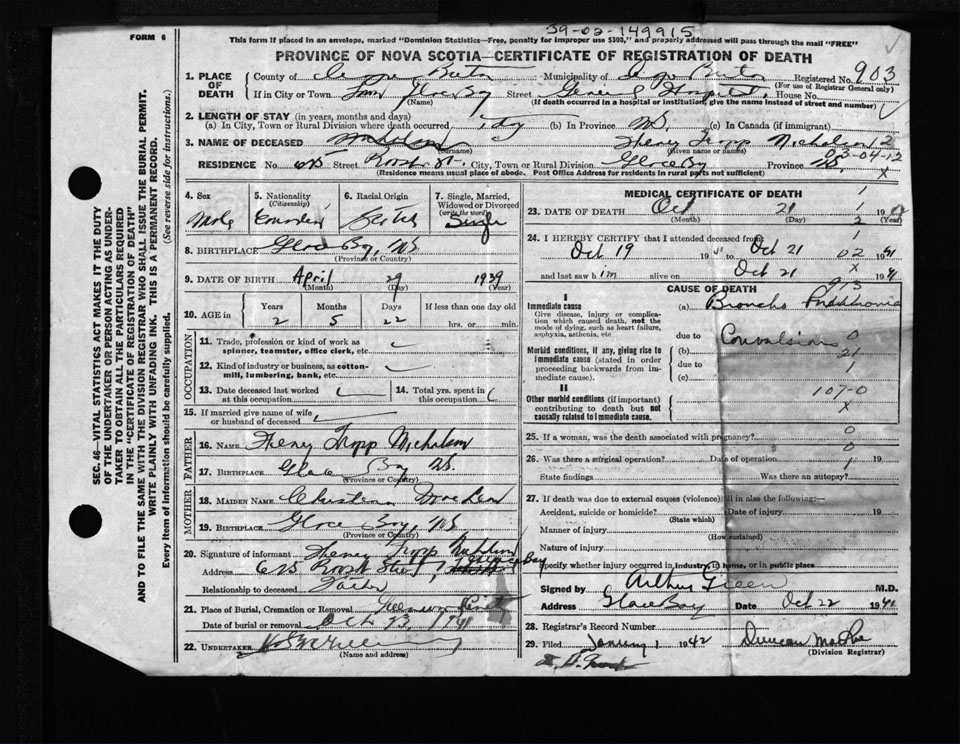 39-02-149915
FORM 6
This form if placed in an envelope, marked "Dominion Statistics—Free, penalty for improper use $300," and properly addressed will pass through the mail "FREE"
PROVINCE OF NOVA SCOTIA—CERTIFICATE OF REGISTRATION OF DEATH
1. PLACE OF DEATH
County of Cape Breton Municipality of Cape Breton Registered No. 903
(For use of Registrar General only)
If in City or Town Town Glace Bay Street General Hospital House No.
(Name) (If death occurred in a hospital or institution, give the name instead of street and number)
2. LENGTH OF STAY (in years, months and days)
(a) In City, Town or Rural Division where death occurred (b) In Province N.S. (c) In Canada (if immigrant)
3. NAME OF DECEASED Nicholson Henry Tropp Nicholson 12
(Surname) (Given name or names) 3-04-12
RESIDENCE No. 625 Street Roost St. City, Town or Rural Division Glace Bay Province N.S.
(Residence means usual place of abode. Post Office Address for residents in rural parts not sufficient) X
4. Sex Male
5. Nationality (Citizenship) Canadian
6. Racial Origin
7. Single, Married, Widowed or Divorced (write the word) Single
8. BIRTHPLACE Glace Bay, NS
(Province or Country)
9. DATE OF BIRTH April 29 1939
(Month) (Day) (Year)
10. AGE in Years Months Days If less than one day old
2 5 22 hrs. or min.
OCCUPATION
11. Trade, profession or kind of work as spinner, teamster, office clerk, etc.
12. Kind of industry or business, as cotton-mill, lumbering, bank, etc.
13. Date deceased last worked at this occupation
14. Total yrs. spent in this occupation
15. If married give name of wife or husband of deceased
FATHER
16. NAME Henry Tropp Nicholson
17. BIRTHPLACE Glace Bay NS
(Province or Country)
MOTHER
18. MAIDEN NAME
19. BIRTHPLACE Glace Bay, NS
(Province or Country)
20. Signature of informant Henry Tropp Nicholson
Address 625 Roost Street Glace Bay
Relationship to deceased Father
21. Place of Burial, Cremation or Removal
Date of burial or removal Oct 23, 1941
22. UNDERTAKER
(Name and address)
MEDICAL CERTIFICATE OF DEATH
23. DATE OF DEATH Oct 21 19
(Month) (Day) (Year)
24. I HEREBY CERTIFY that I attended deceased from
Oct 19 19 41 to Oct 21 1941
and last saw him alive on Oct 21 1941
CAUSE OF DEATH
I
Immediate cause
Give disease, injury or complication which caused death, not the mode of dying, such as heart failure, asphyxia, asthenia, etc
(a) Broncho Pneumonia
due to
Morbid conditions, if any, giving rise to immediate cause (stated in order proceeding backwards from immediate cause).
(b) Convulsions
due to
(c)
II
Other morbid conditions (if important) contributing to death but not causally related to immediate cause.
107-0
X
25. If a woman, was the death associated with pregnancy?
26. Was there a surgical operation? Date of operation 19
State findings Was there an autopsy?
27. If death was due to external causes (violence) fill in also the following:—
Accident, suicide or homicide? Date of injury 19
(State which)
Manner of injury
(How sustained)
Nature of injury
Specify whether injury occurred in Industry, in home, or in public place
Signed by Arthur Green M.D.
Address Glace Bay Date Oct 22 1941
28. Registrar's Record Number
29. Filed 1942 Duncan
(Division Registrar)
SEC. 46—VITAL STATISTICS ACT MAKES IT THE DUTY OF THE UNDERTAKER OR PERSON ACTING AS UNDERTAKER TO OBTAIN ALL THE PARTICULARS REQUIRED IN THE "CERTIFICATE OF REGISTRATION OF DEATH" AND TO FILE THE SAME WITH THE DIVISION REGISTRAR WHO SHALL ISSUE THE BURIAL PERMIT.
WRITE PLAINLY WITH UNFADING INK. THIS IS A PERMANENT RECORD.
Every item of information should be carefully supplied. (See reverse side for instructions.)